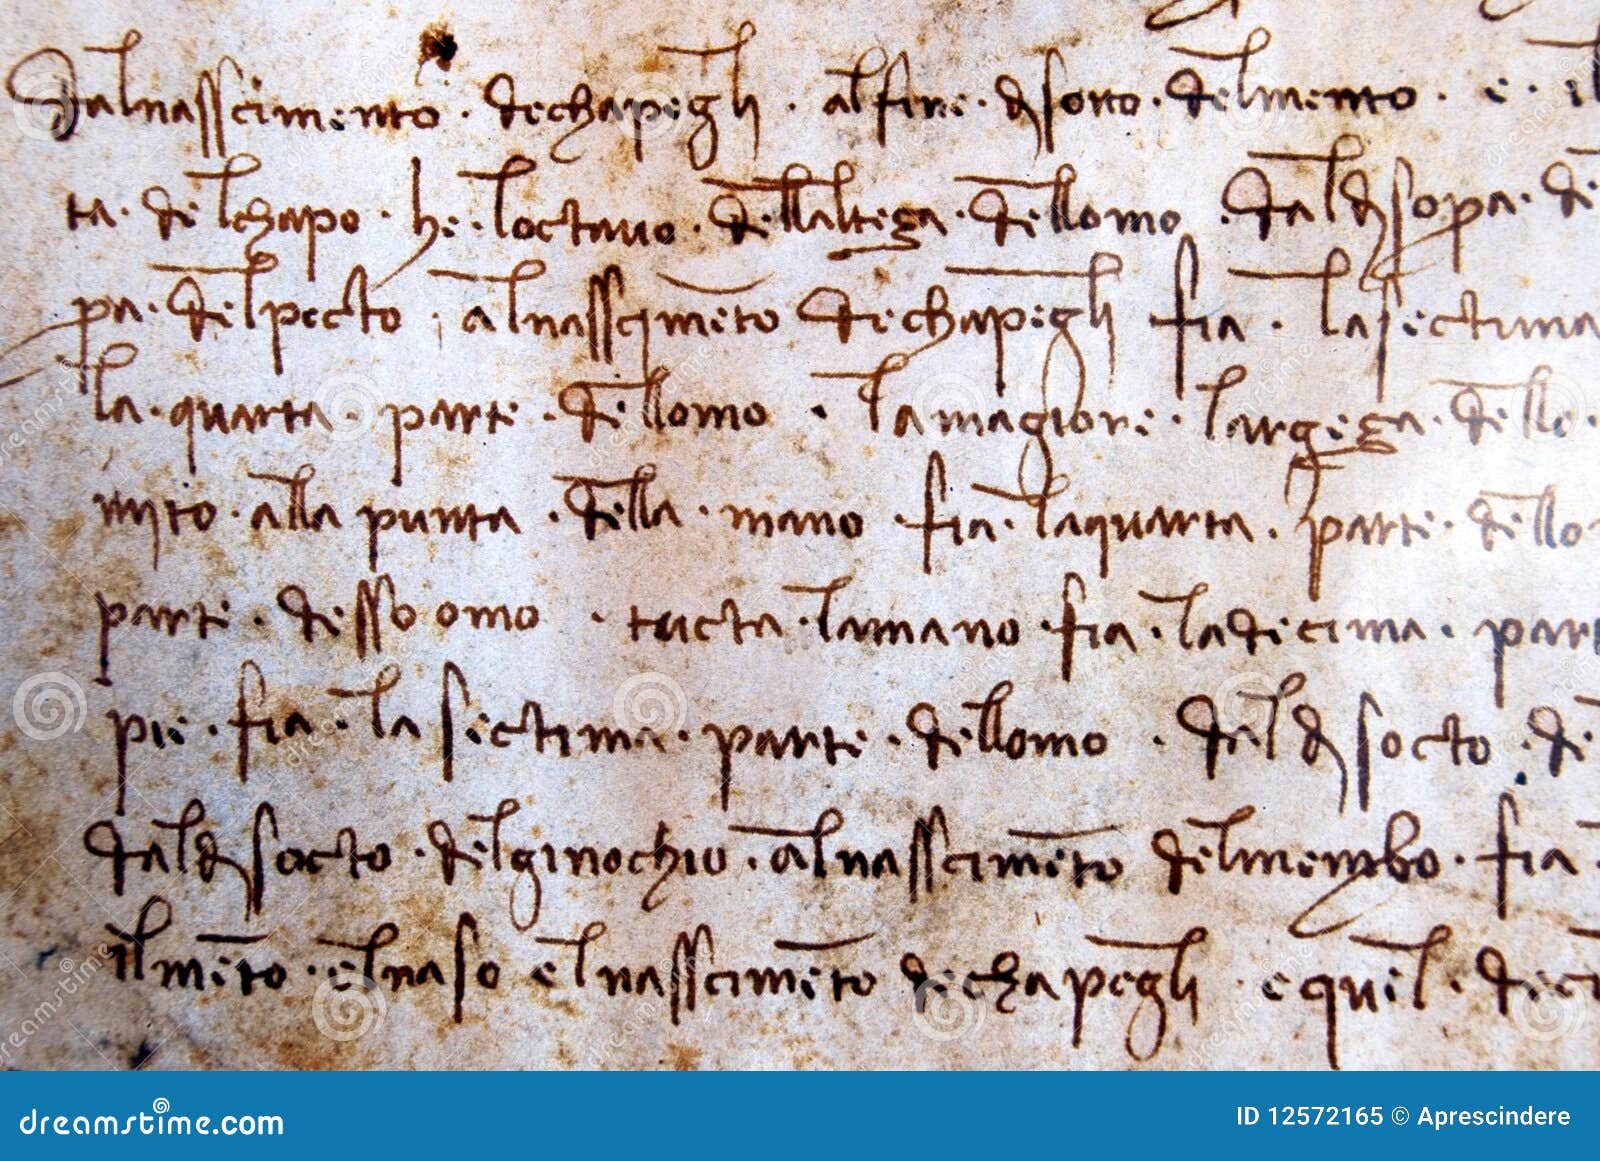 Dalnasscimento · dechapegli · alfine · dj socto · delmento · e · il
ta · delchapo · he · loctavo · dellaltega · dellomo · daldj sopa · de
pa · delpecto · alnasscimēto dechapegli fia · lasectima
la · quarta · parte · dellomo · lamagiore · largega · dello
mito · alla punta · della · mano · fia · laquarta · parte · dello
parte · desso omo · tucta · lamano · fia · ladecima · part
pie · fia · la sectima · parte · dellomo · daldj socto · de
daldj socto · delginochio · alnasscimēto delmembo · fia
ilmēto · elnaso e lnasscimēto dechapegli · e quel · deci
dreamstime.com
ID 12572165 © Aprescindere